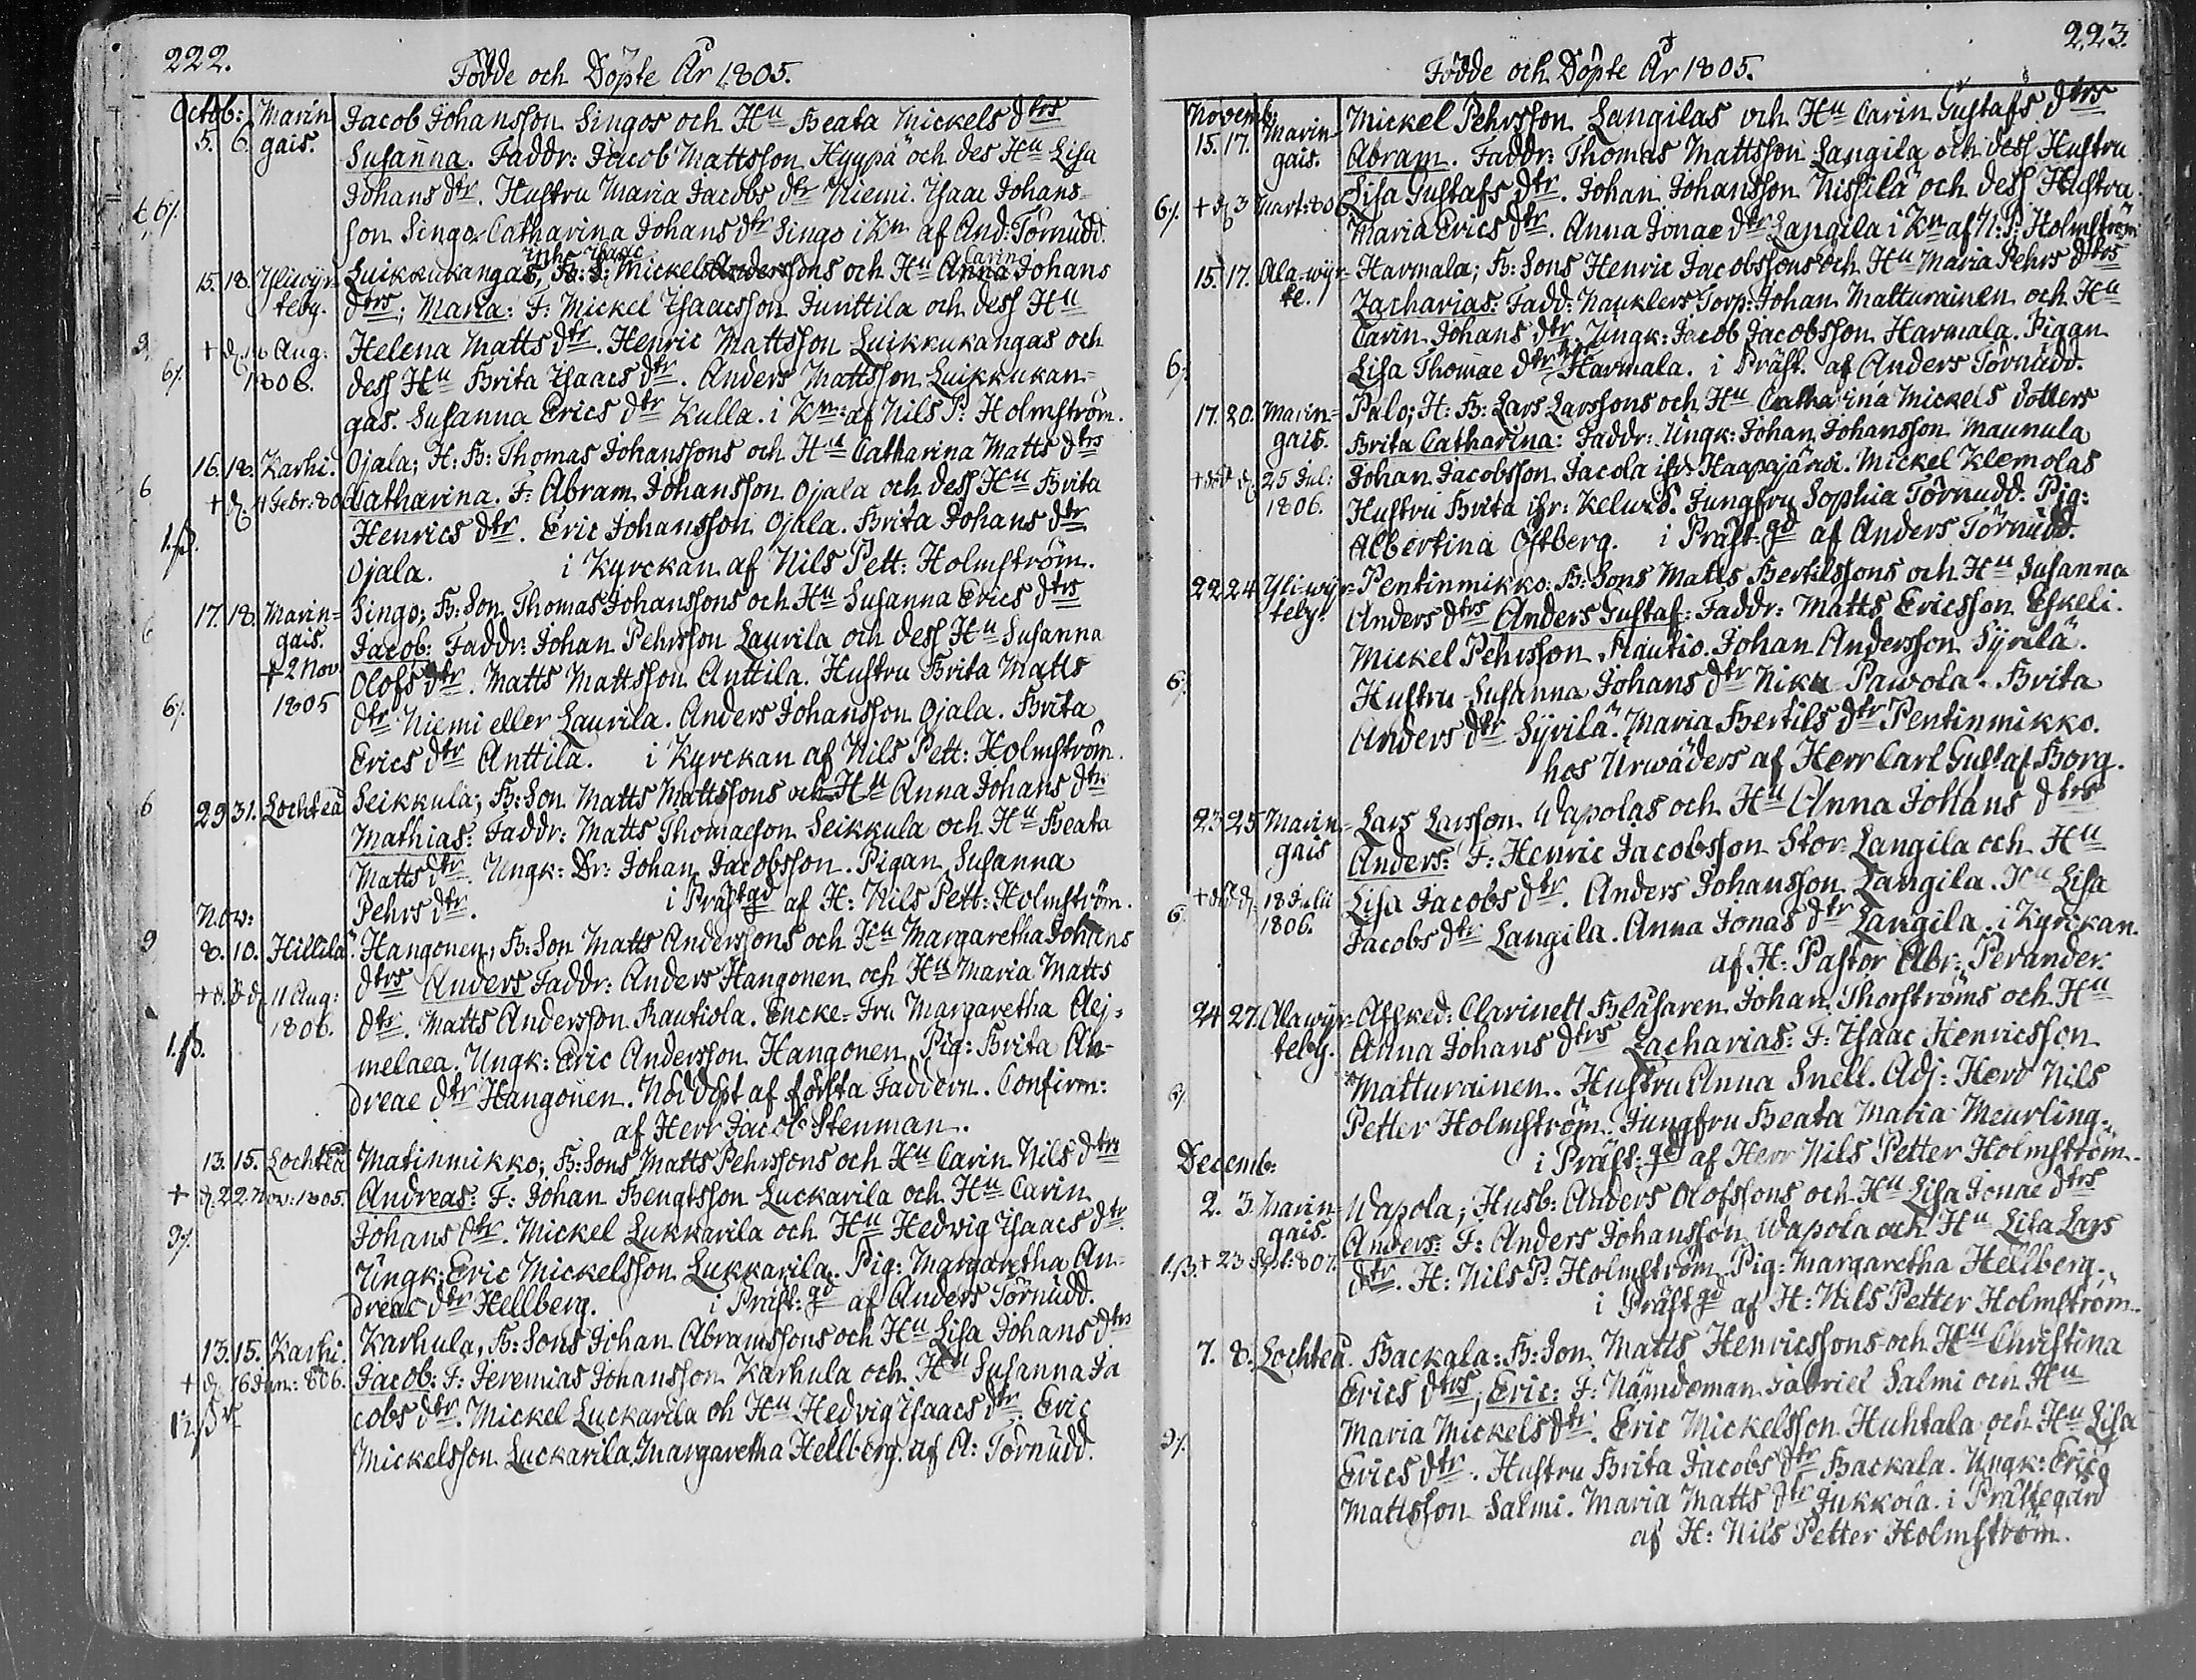 222.
Födde och Döpte År 1805.
Octob: Marin Jacob Johansson Singos och Hu Beata Mickels dtrs
5. 6. gais. Susanna. Faddr: Jacob Mattsson Hyypä och des Hu Lisa
Johans dtr. Hustru Maria Jacobs dtr Niemi. Isaac Johans-
6/. son Singo. Catharina Johans dtr Singo i Kn af And: Törnudd.
inhs Isaac Carin
15. 18. Yliwijr Luikkukangas, B: S: Mickel Anderssons och Hu Anna Johans
teby. dtrs; Maria: F: Mickel Isaacsson Junttila och dess Hu
+ d. Aug: Helena Matts dtr. Henric Mattsson Luikkukangas och
6/. 1806. dess Hu Brita Isaacs dtr. Anders Mattsson Luikkukan-
gas. Susanna Erics dtr Kulla. i Kn: af Nils P: Holmström.
16. 18. Karhi. Ojala; H: B: Thomas Johanssons och Hu Catharina Matts dtrs
6 + d. 4 Febr: 806 Catharina. F: Abram Johansson Ojala och dess Hu Brita
Henrics dtr. Eric Johansson Ojala. Brita Johans dtr
Ojala. i Kyrckan af Nils Pett: Holmström.
17. 18. Marin= Singo; B: Son Thomas Johanssons och Hu Susanna Erics dtrs
6 gais. Jacob: Faddr: Johan Pehrsson Laurila och dess Hu Susanna
+ 2 Nov. Olofs dtr. Matts Mattsson Anttila. Hustru Brita Matts
6/. 1805 dtr Niemi eller Laurila. Anders Johansson Ojala. Brita
Erics dtr Anttila. i Kyrckan af Nils Pett: Holmström.
6 29 31. Lochteå Seikkula; B: Son Matts Mattssons och Hu Anna Johans dtrs
Mathias: Faddr: Matts Thomaeson Seikkula och Hu Beata
Matts dtr. Ungk: Dr: Johan Jacobsson. Pigan Susanna
Nov: Pehrs dtr. i Präst gd af H: Nils Pett: Holmström.
9 8. 10. Hillilä. Hangonen, B: Son Matts Anderssons och Hu Margaretha Johans
dtrs Anders Faddr: Anders Hangonen och Hu Maria Matts
11 Aug: dtr. Matts Andersson Rautiola. Encke-Fru Margaretha Alej-
1806. melaea. Ungk: Eric Andersson Hangonen, Pig: Brita An-
dreae dtr Hangonen. Nöd Döpt af första Faddern. Confirm:
af Herr Jacob Stenman.
13. 15. Lochteå Matinmikko; B: Sons Matts Pehrssons och Hu Carin Nils dtrs
+ d. 22 Nov: 1805. Andreas: F: Johan Bengtsson Luckarila och Hu Carin
9/. Johans dtr. Mickel Lukkarila och Hu Hedvig Isaacs dtr.
Ungk: Eric Mickelsson Lukkarila. Pig: Margaretha An-
dreae dtr Hellberg. i Präst: gd af Anders Törnudd.
13. 15. Karhi. Karhula, B: Sons Johan Abramssons och Hu Lisa Johans dtrs
+ d. 16 Jan: 806. Jacob: F: Jeremias Johansson Karhula och Hu Susanna Ja
cobs dtr. Mickel Luckarila oh Hu Hedvig Isaacs dtr. Eric
Mickelsson Luckarila. Margaretha Hellberg. af A: Törnudd.
223.
Födde och Döpte År 1805.
Novemb. Mickel Pehrsson Langilas och Hu Carin Gustafs dtrs
15. 17. Marin- Abram. Faddr: Thomas Mattsson Langila och dess Hustru
gais. Lisa Gustafs dtr. Johan Johansson Nissilä och dess Hustru
6/. + d. 3 Mart: 806 Maria Erics dtr. Anna Jonae dtr Langila i Kn af N: P: Holmström
15. 17. Ala-wijr- Harmala; B: Sons Henric Jacobssons och Hu Maria Pehrs dtrs
te. Zacharias: Fadd: Nauklers Torp: Johan Matturainen och Hu
Carin Johans dtr. Ungk: Jacob Jacobsson Harmala. Pigan
6. Lisa Thomae dtr Harmala. i Präst. af Anders Törnudd.
17. 20. Marin= Palo; H: B: Lars Larssons och Hu Catharina Mickels dotters
gais. Brita Catharina: Faddr: Ungk: Johan Johansson Maunula
25 Jul: Johan Jacobsson Jacola ifr: Haapajärvi. Mickel Klemolas
1806. Hustru Brita ifr: Kelwiå. Jungfru Sophia Törnudd. Pig:
Albertina Östberg. i Präst gd af Anders Törnudd.
22 24 Yliwijr- Pentinmikko: B: Sons Matts Bertilssons och Hu Susanna
teby. Anders dtrs Anders Gustaf: Faddr: Matts Ericsson Eskeli.
Mickel Pehrsson Rautio. Johan Andersson Syrilä.
6/. Hustru Susanna Johans dtr Niku Pawola. Brita
Anders dtr Syrilä. Maria Bertils dtr Pentinmikko.
hos Urwäders af Herr Carl Gustaf Borg.
23 25 Marin- Lars Larsson Wapolas och Hu Anna Johans dtrs
gais Anders: F: Henric Jacobsson Stor-Langila och Hu
18 Julii Lisa Jacobs dtr. Anders Johansson Langila. Hu Lisa
6. 1806. Jacobs dtr Langila. Anna Jonas dtr Langila. i Kyrckan
af H: Pastor Abr: Perander.
24 27. Alawijr- Afsked: Clarinett Blåsaren Johan Thorströms och Hu
teby. Anna Johans dtrs Zacharias: F: Isaac Henricsson
Matturainen. Hustru Anna Snell. Adj: Herr Nils
Petter Holmström. Jungfru Beata Maria Meurling-
Decemb: i Präst: gd af Herr Nils Petter Holmström.
2. 3 Marin Wapola; Husb: Anders Olofssons och Hu Lisa Jonae dtrs
gais. Anders: F: Anders Johansson Wapola och Hu Lisa Lars
+ 23 807. dtr. H: Nils P: Holmström. Pig: Margaretha Hellberg.
i Präst gd af H: Nils Petter Holmström.
7. 8. Lochteå. Backala: B: Son Matts Henricssons och Hu Christina
Erics dtrs; Eric: F: Nämdeman Gabriel Salmi och Hu
9/. Maria Mickels dtr. Eric Mickelsson Huhtala och Hu Lisa
Erics dtr. Hustru Brita Jacobs dtr Backala. Ungk: Eric
Mattsson Salmi. Maria Matts dtr Jukkola. i Prästegård
af H: Nils Petter Holmström.